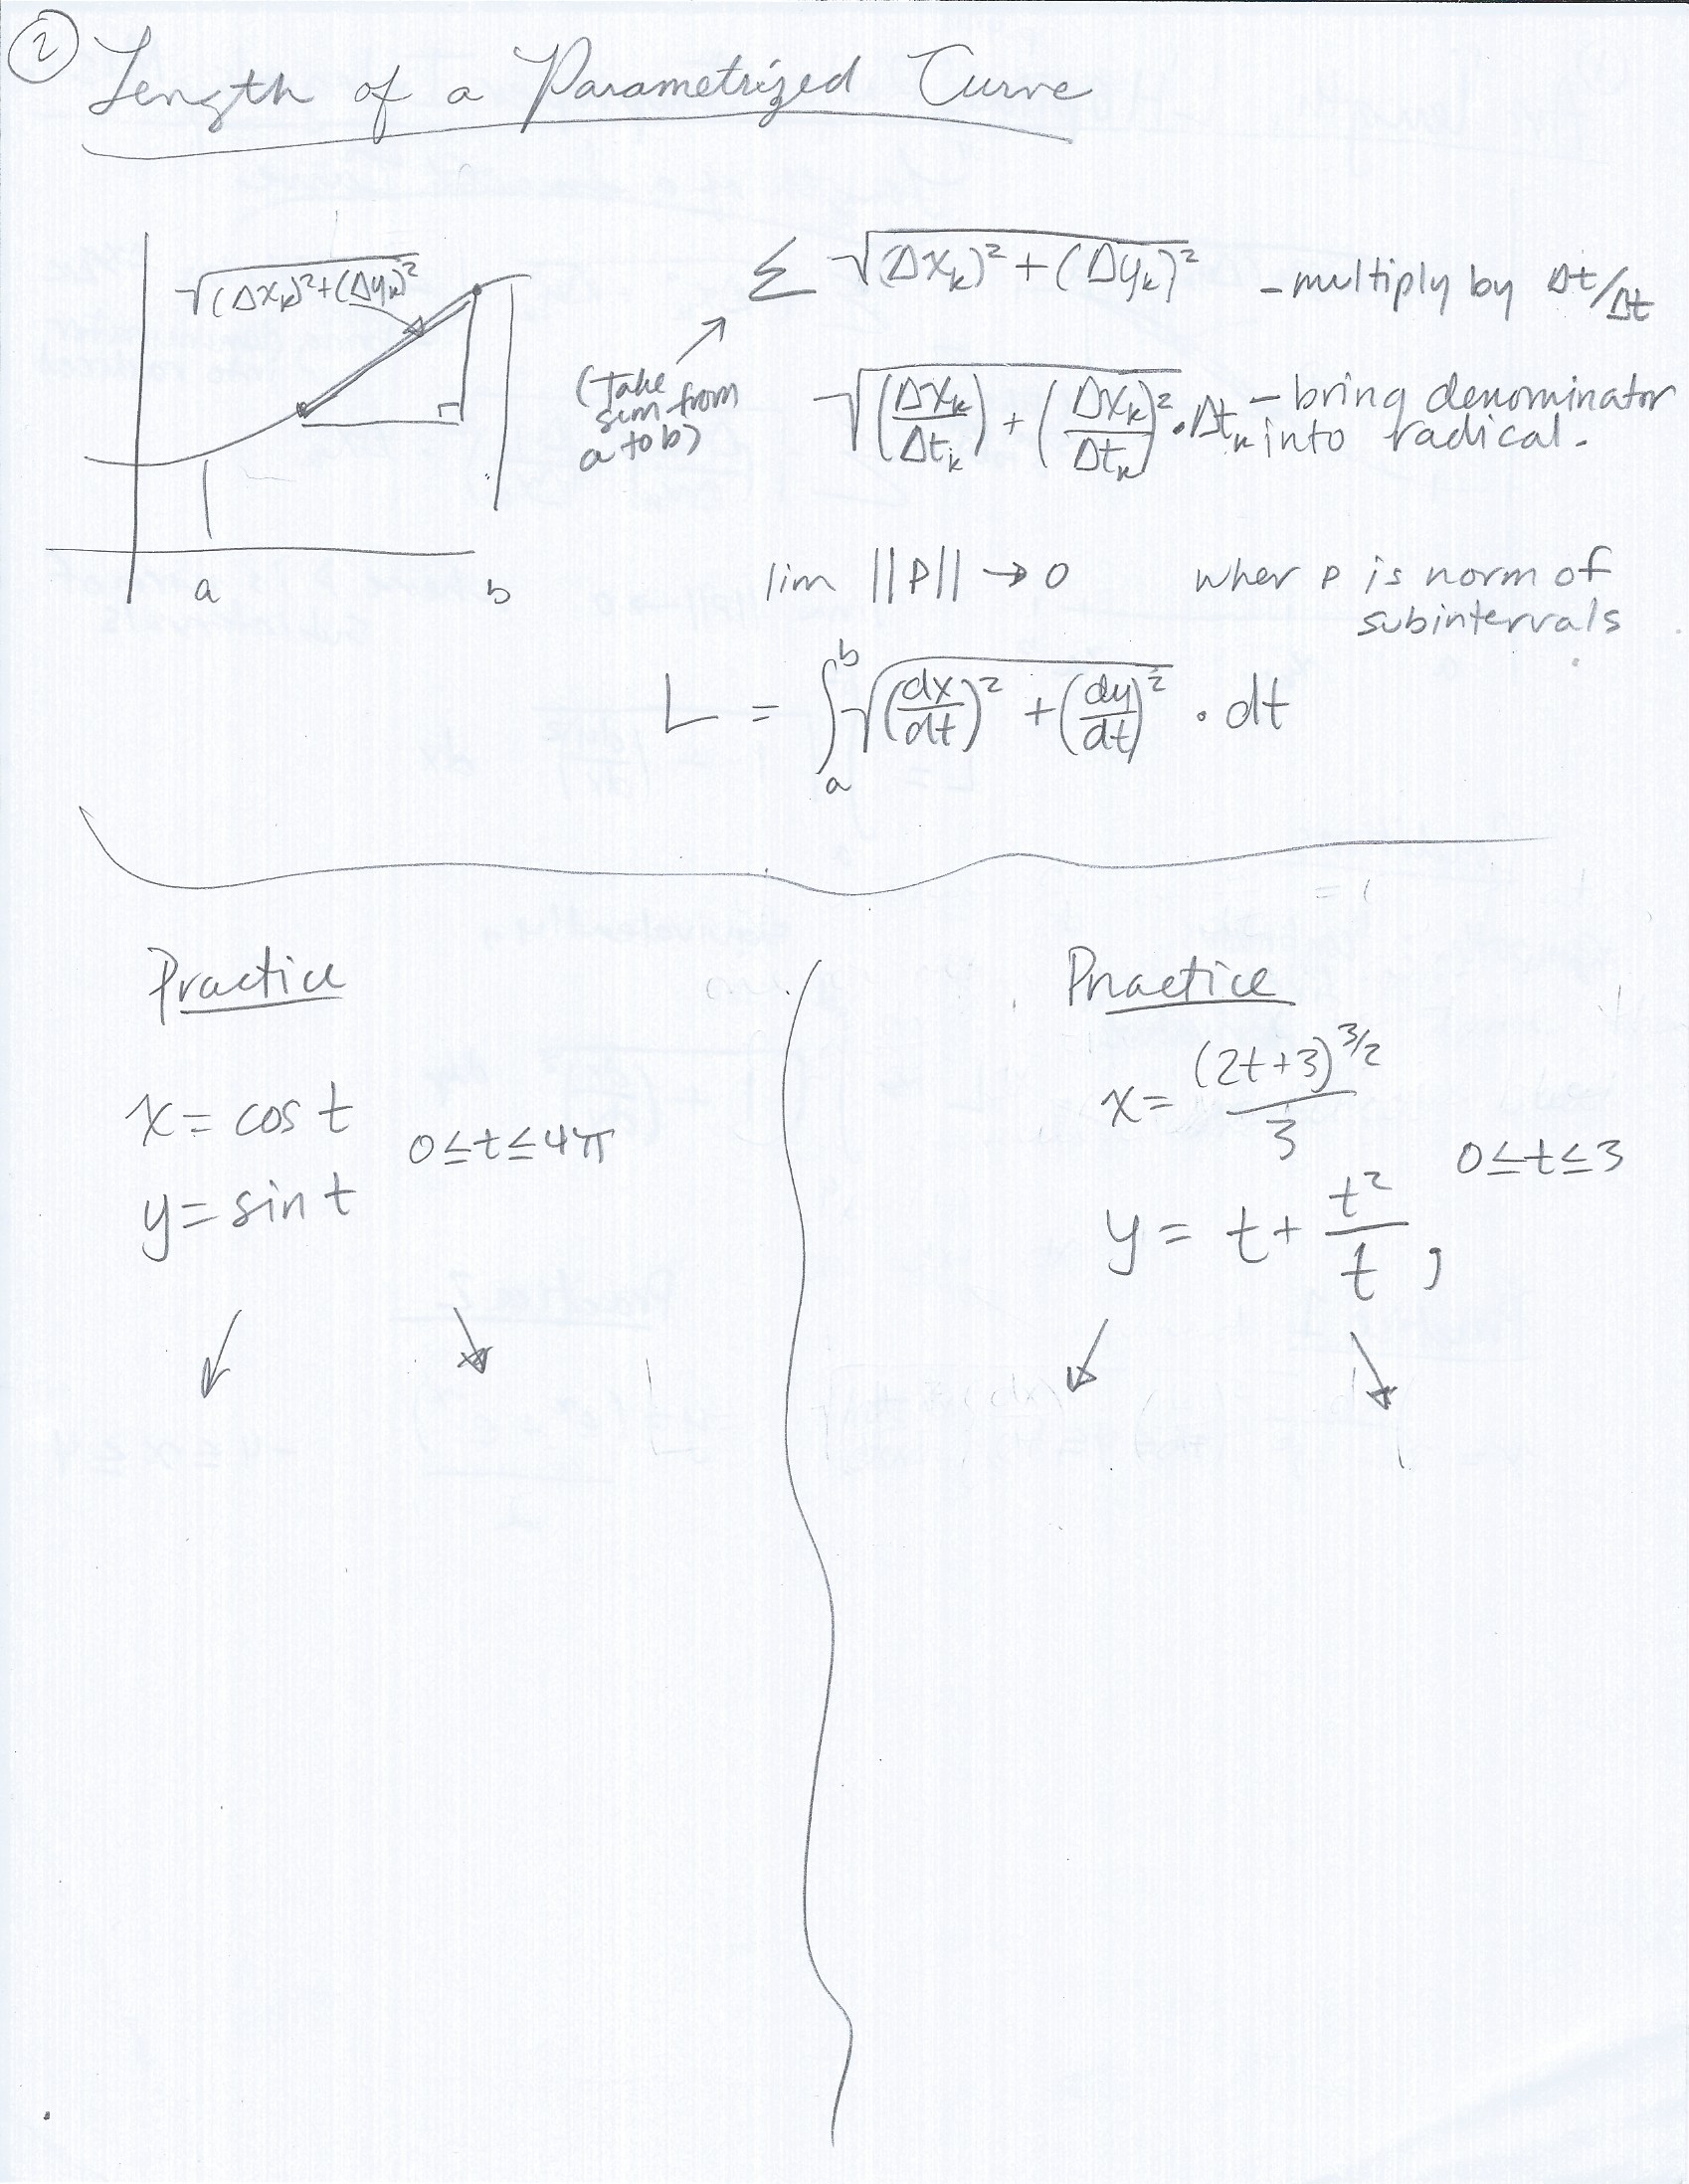 ②
Length of a Parametrized Curve
√(Δxₖ)²+(Δyₖ)²
a b
Σ √(Δxₖ)² + (Δyₖ)² - multiply by Δt/Δt
(take
sum from
a to b)
√(Δxₖ/Δtₖ) + (Δxₖ/Δtₖ)² · Δtₖ - bring denominator
into radical.
lim ||P|| → 0 wher P is norm of
subintervals
L = ∫ₐᵇ √(dx/dt)² + (dy/dt)² · dt
Practice
x = cos t
0 ≤ t ≤ 4π
y = sin t
Practice
x = (2t+3)^3/2 / 3
0 ≤ t ≤ 3
y = t + t²/t ,